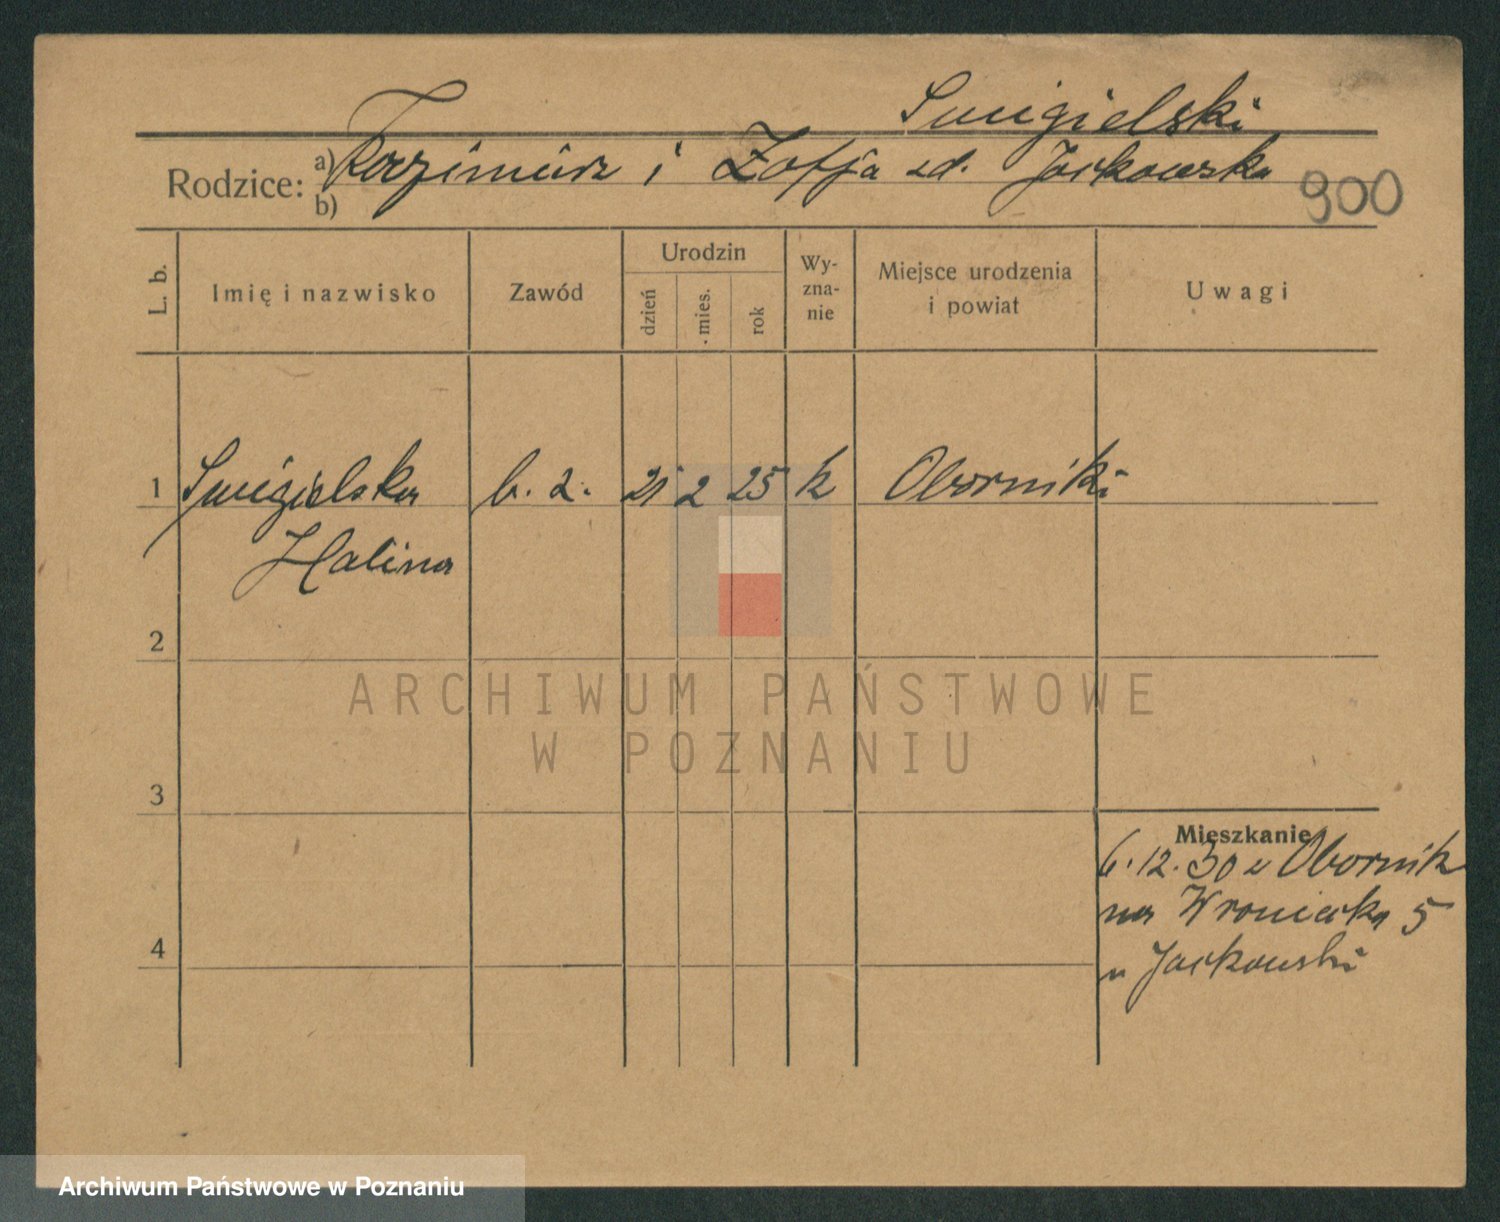 Smigielski
Rodzice: a) Kazimierz i Zofja zd. Jackowska
b)
900
L. b. Imię i nazwisko Zawód Urodzin dzień mies. rok Wyznanie Miejsce urodzenia i powiat Uwagi
1 Smigielska b. z. 21 2 25 k Oborniki
Halina
2
3
4
Mieszkanie
6.12.30 z Obornik
na Wroniecka 5
u Jackowski
ARCHIWUM PAŃSTWOWE
W POZNANIU
Archiwum Państwowe w Poznaniu